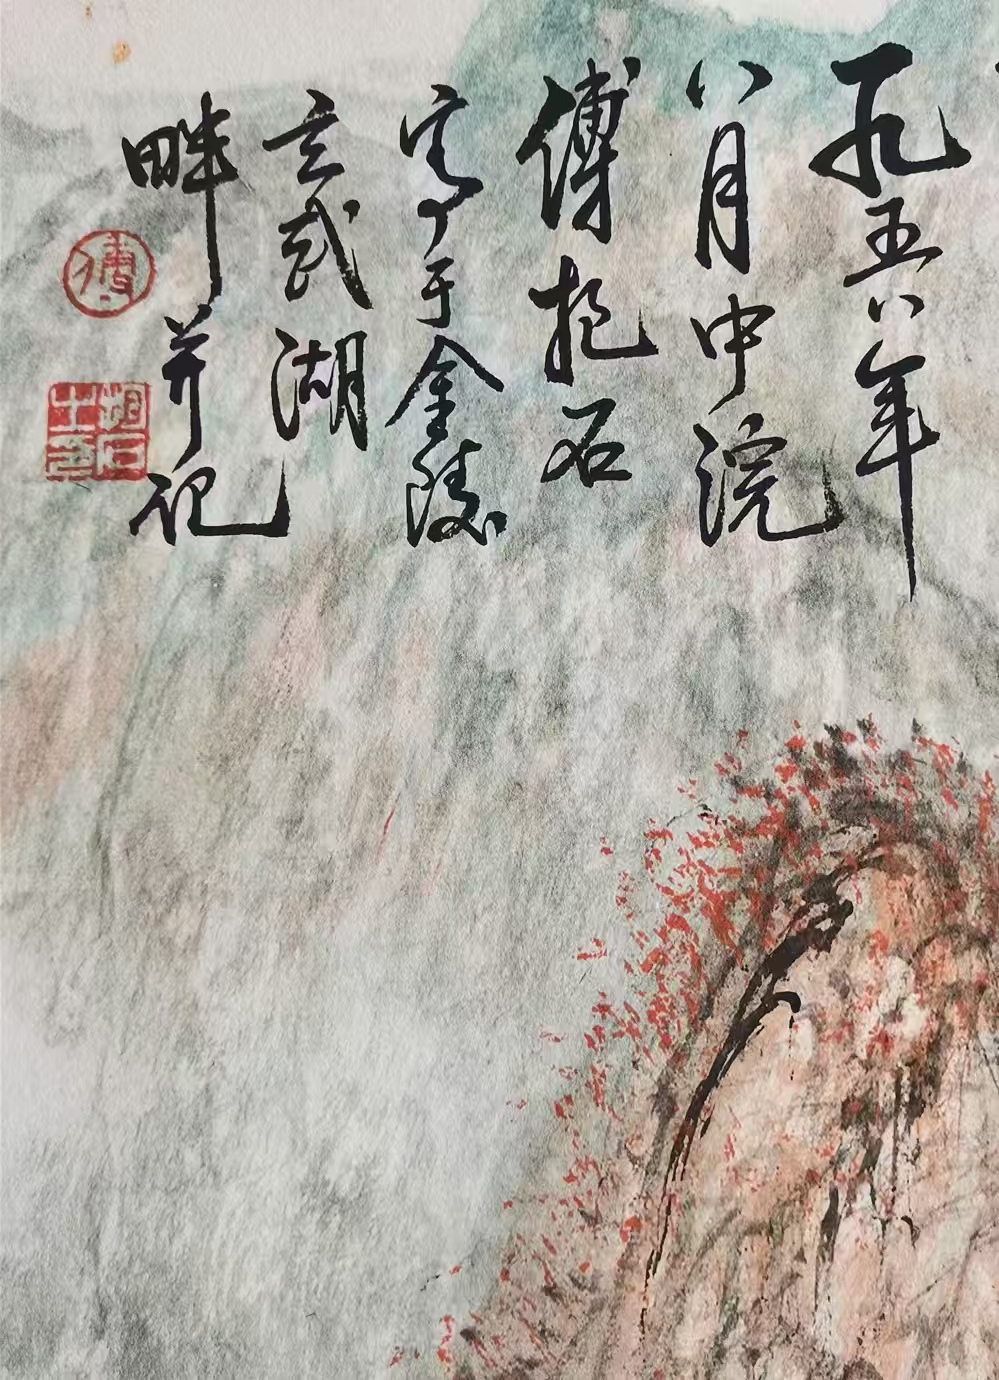 九五八年
八月中浣
傅抱石
写于金陵
玄武湖
畔并记
傅
抱石